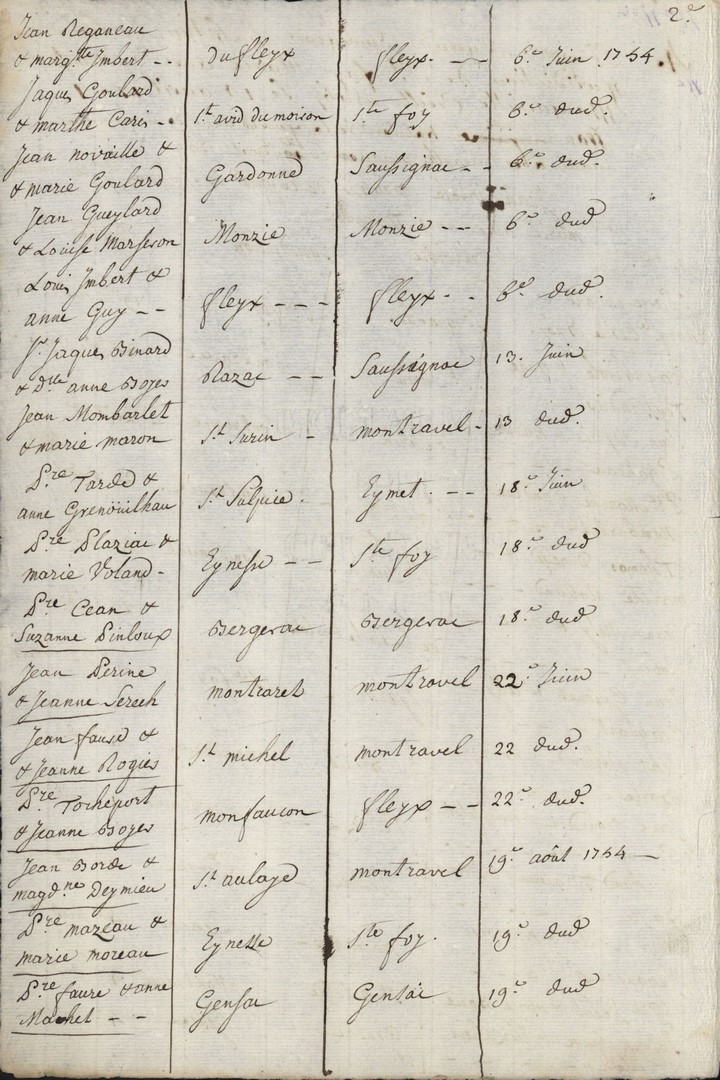 2.e
Jean Reganeau
& marg.te Imbert -- du fleyx fleyx. -- 6.e Juin 1744.
Jaques Goulard
& marthe Caris - S.t avid du moison S.te foy 6.e dud.
Jean novaille &
& marie Goulard Gardonne Saussignac - - 6.e dud.
Jean Gueylard
& Louise Marseron Monzie Monzie -- 6.e dud
Louis Imbert &
anne Guy -- fleyx --- fleyx - - 6.e dud.
S.r Jaques Binard
& D.lle anne Boyes Razac -- Saussignac 13. Juin
Jean Mombarlet
& marie maron S.t Surin - montravel - 13 dud.
P.re Tarde &
anne Grenouilhau S.t Sulpice. Eymet. -- 18.e Juin
P.re Plaziac &
marie Voland - Eynesse -- S.te foy 18.e dud
P.re Cean &
Suzanne Pinloux Bergerac Bergerac 18.e dud
Jean Perine
& Jeanne Serech montraret montravel 22.e Juin
Jean fause &
& Jeanne Rogies S.t michel montravel 22 dud.
P.re Torheport
& Jeanne Boyes monfaucon fleyx -- 22.e dud.
Jean Borde &
magd.ne Deymieu S.t aulaye montravel 19.e août 1744 -
P.re mazeau &
marie moreau Eynesse S.te foy. 19.e dud
P.re faure & anne
Machet -- Gensac Gensac 19.e dud